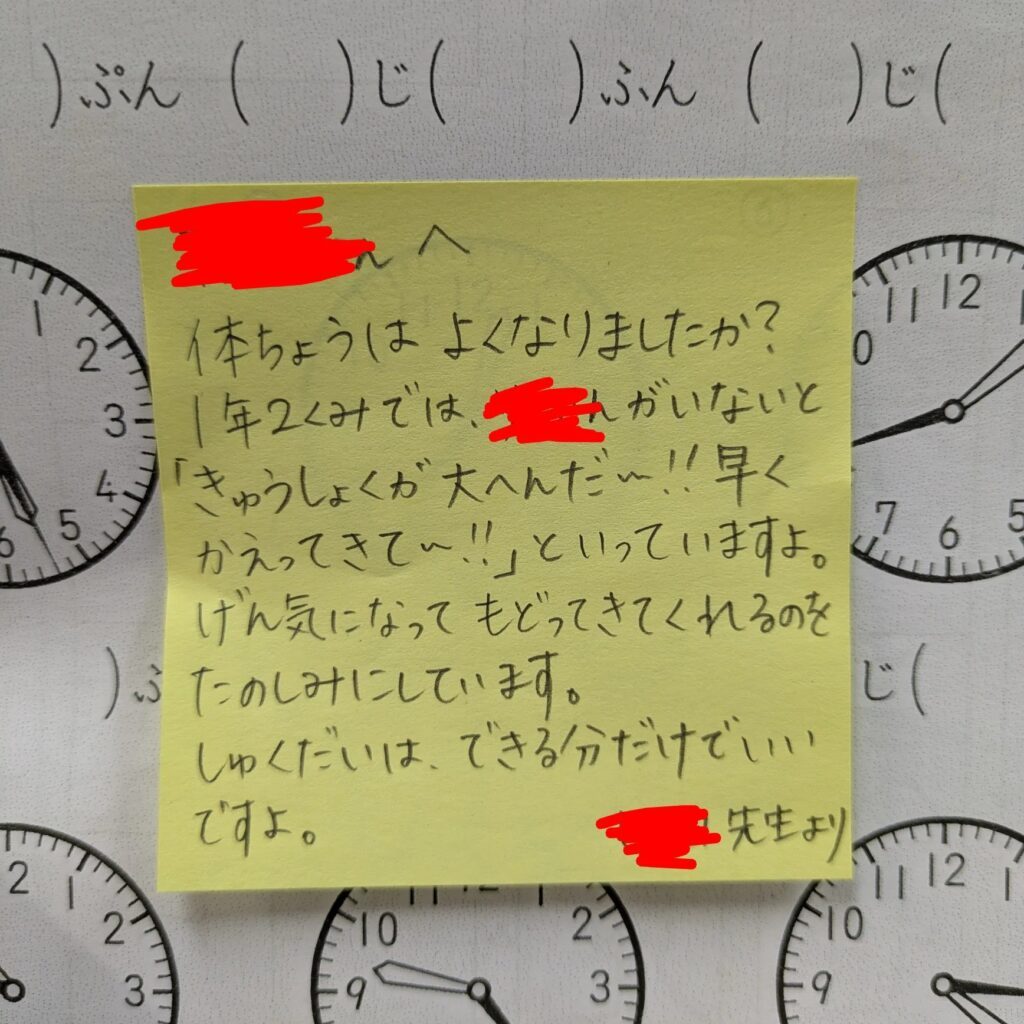 )ぷん ( )じ( )ふん ( )じ(
んへ
体ちょうは よくなりましたか?
1年2くみでは、 んがいないと
「きゅうしょくが 大へんだ〜!! 早く
かえってきて〜!!」といっていますよ。
げん気になって もどってきてくれるのを
たのしみにしています。
しゅくだいは、できる分だけでいい
ですよ。
先生より
1
2
3
4
5
6
12
11
0
7
6
5
)ふ
じ(
2
1
2
3
10
9
2
3
12
11
10
9
1